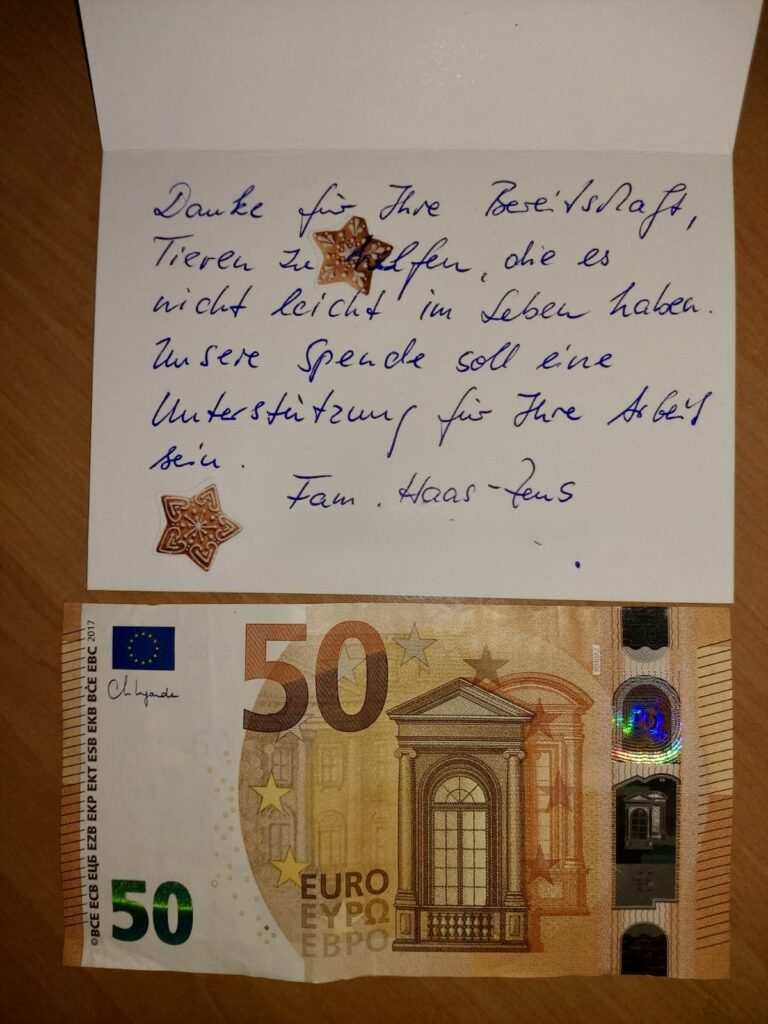 Danke für Ihre Bereitschaft,
Tieren zu helfen, die es
nicht leicht im Leben haben.
Unsere Spende soll eine
Unterstützung für Ihre Arbeit
sein.
Fam. Haas-Zens
©BCE ECB ЕЦБ EZB EKP EKT ESB EKB BĊE EBC 2017
50
50
EURO
ΕΥΡΩ
ЕВРО